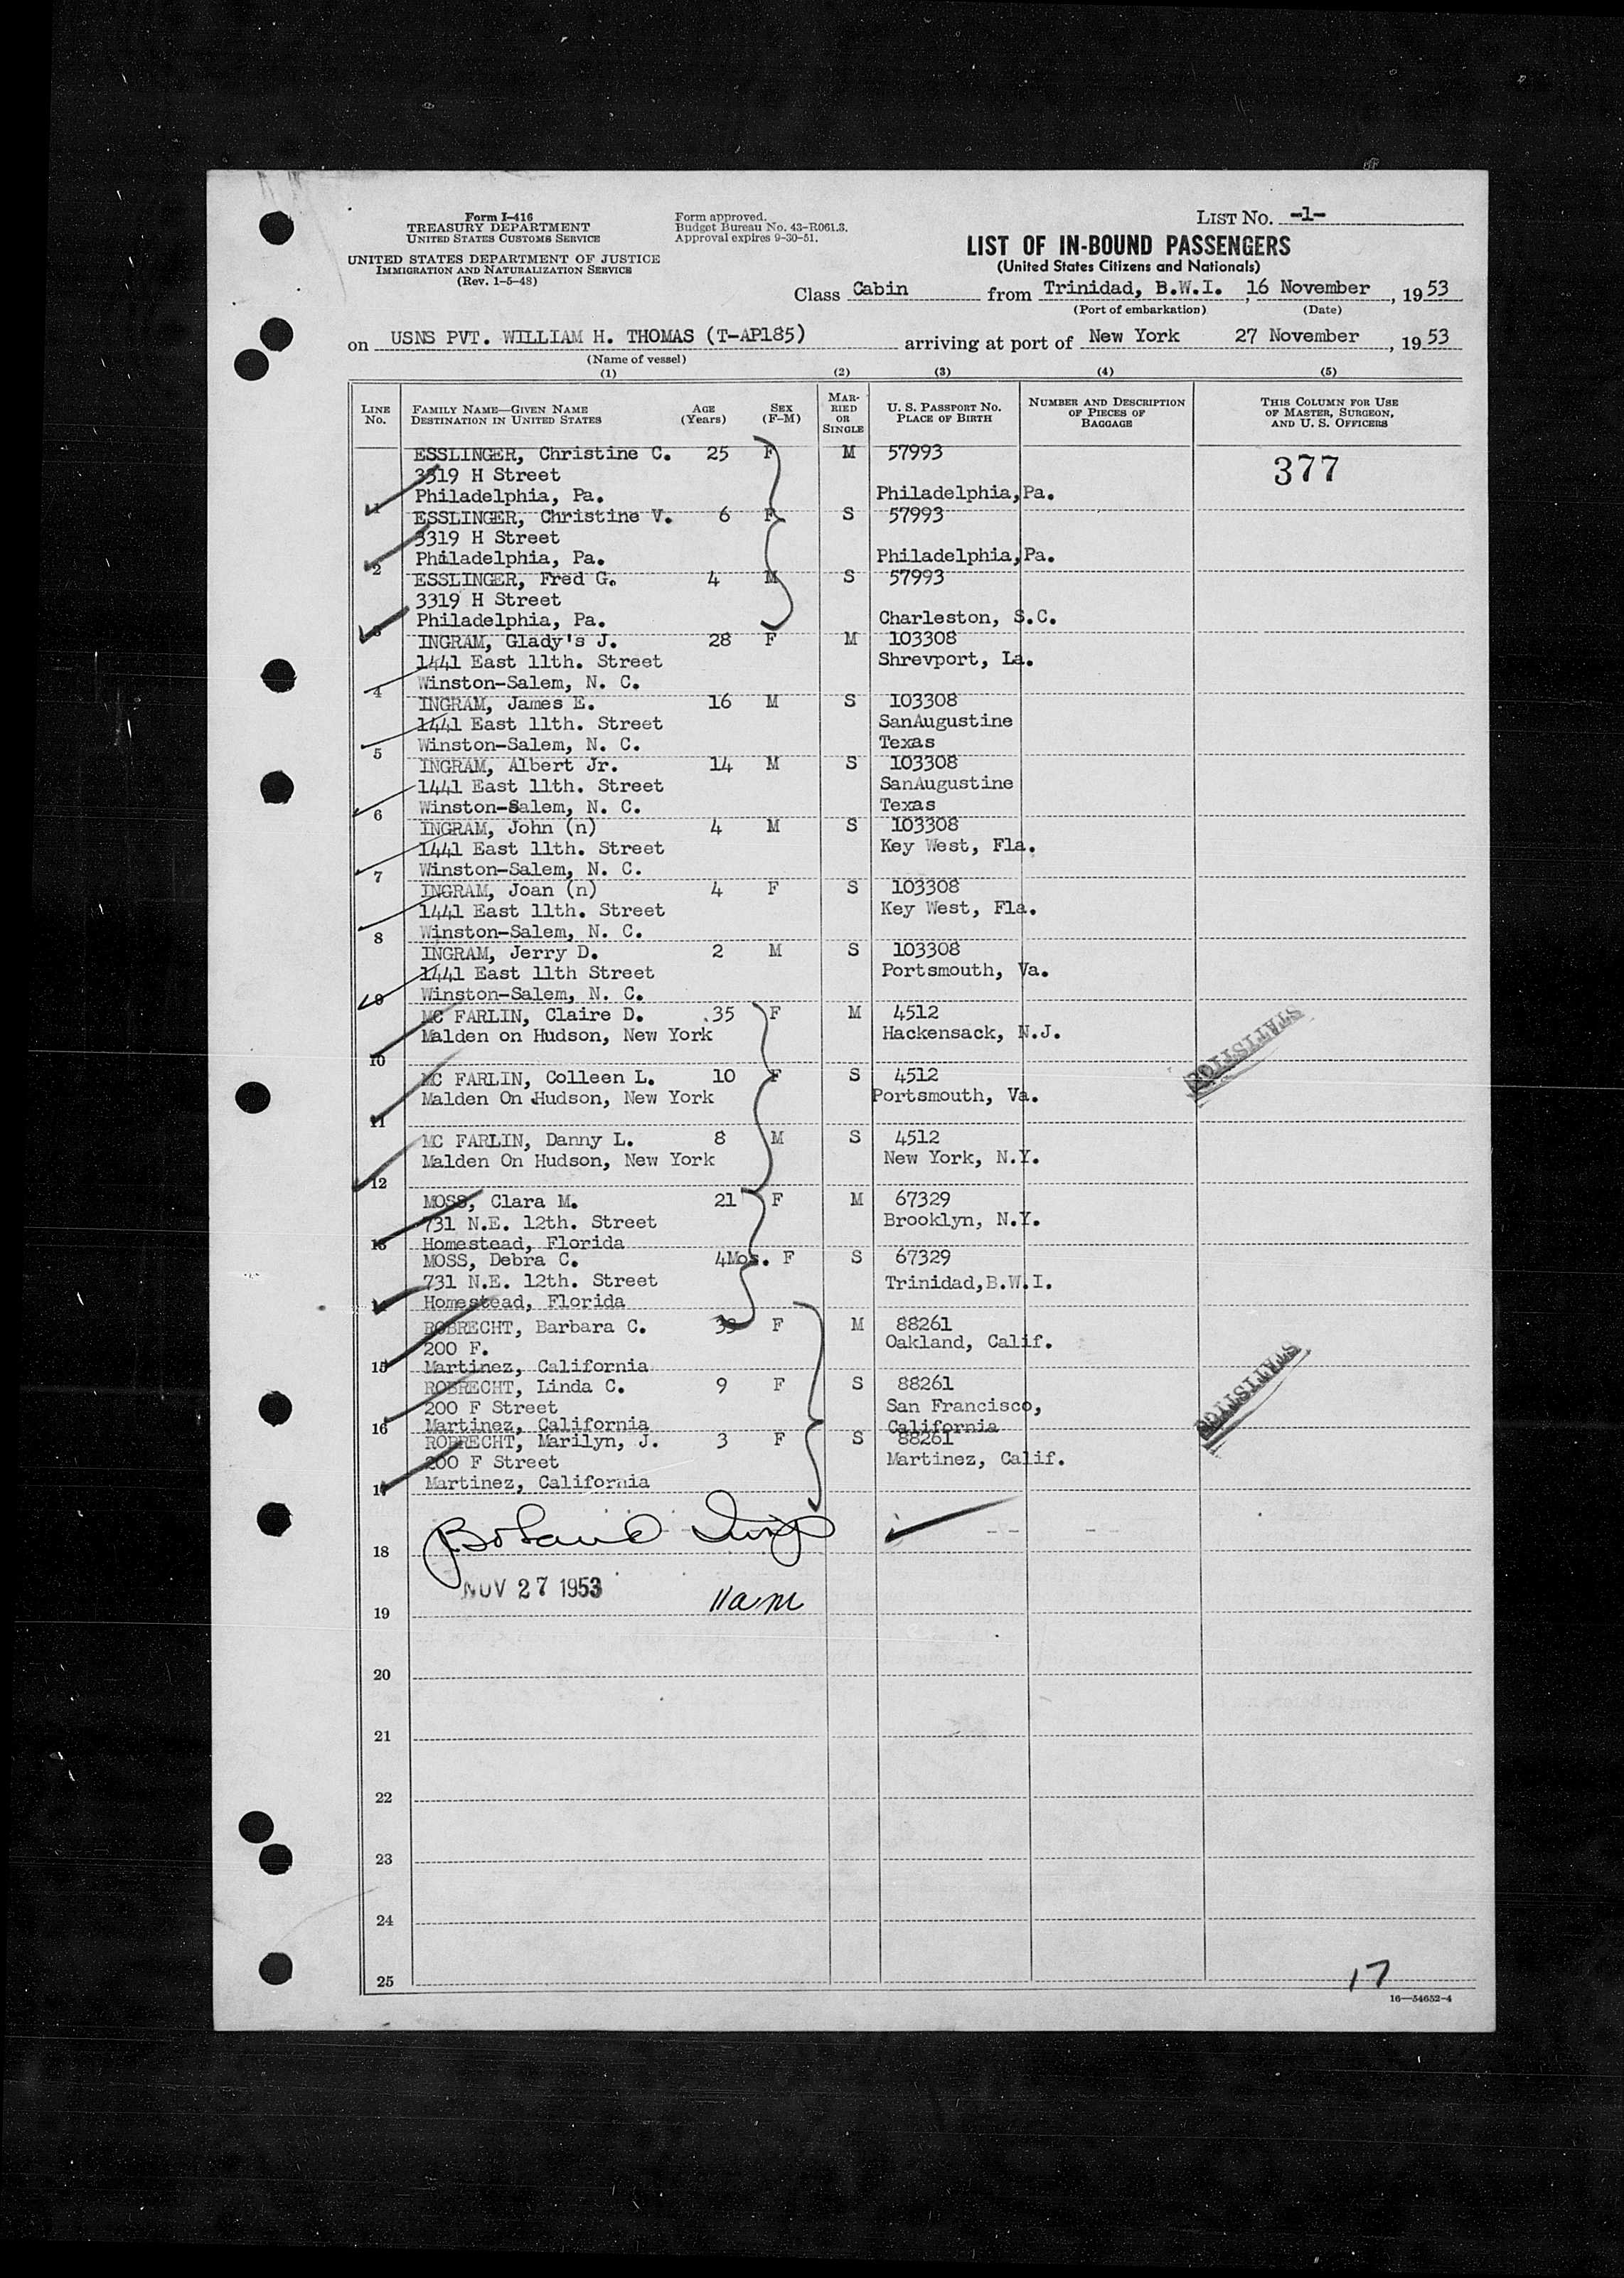 Form I-416
TREASURY DEPARTMENT
UNITED STATES CUSTOMS SERVICE
UNITED STATES DEPARTMENT OF JUSTICE
IMMIGRATION AND NATURALIZATION SERVICE
(Rev. 1-5-48)
Form approved.
Budget Bureau No. 43-R061.3.
Approval expires 9-30-51.
LIST NO. -1-
LIST OF IN-BOUND PASSENGERS
(United States Citizens and Nationals)
Class Cabin from Trinidad, B.W.I. , 16 November , 1953
(Port of embarkation) (Date)
on USNS PVT. WILLIAM H. THOMAS (T-AP185) arriving at port of New York 27 November , 1953
(Name of vessel)
(1) (2) (3) (4) (5)
LINE NO.
FAMILY NAME—GIVEN NAME
DESTINATION IN UNITED STATES
AGE (Years)
SEX (F-M)
MARRIED OR SINGLE
U. S. PASSPORT NO.
PLACE OF BIRTH
NUMBER AND DESCRIPTION OF PIECES OF BAGGAGE
THIS COLUMN FOR USE OF MASTER, SURGEON, AND U. S. OFFICERS
ESSLINGER, Christine C. 25 F M 57993 377
3319 H Street
1 Philadelphia, Pa. Philadelphia, Pa.
ESSLINGER, Christine V. 6 F S 57993
3319 H Street
2 Philadelphia, Pa. Philadelphia, Pa.
ESSLINGER, Fred G. 4 M S 57993
3319 H Street
3 Philadelphia, Pa. Charleston, S.C.
INGRAM, Glady's J. 28 F M 103308
1441 East 11th. Street Shrevport, La.
4 Winston-Salem, N. C.
INGRAM, James E. 16 M S 103308
1441 East 11th. Street SanAugustine
5 Winston-Salem, N. C. Texas
INGRAM, Albert Jr. 14 M S 103308
1441 East 11th. Street SanAugustine
6 Winston-Salem, N. C. Texas
INGRAM, John (n) 4 M S 103308
1441 East 11th. Street Key West, Fla.
7 Winston-Salem, N. C.
INGRAM, Joan (n) 4 F S 103308
1441 East 11th. Street Key West, Fla.
8 Winston-Salem, N. C.
INGRAM, Jerry D. 2 M S 103308
1441 East 11th Street Portsmouth, Va.
9 Winston-Salem, N. C.
MC FARLIN, Claire D. 35 F M 4512
Malden on Hudson, New York Hackensack, N.J.
10
STATISTICS
MC FARLIN, Colleen L. 10 F S 4512
Malden On Hudson, New York Portsmouth, Va.
11
MC FARLIN, Danny L. 8 M S 4512
Malden On Hudson, New York New York, N.Y.
12
MOSS, Clara M. 21 F M 67329
731 N.E. 12th. Street Brooklyn, N.Y.
13 Homestead, Florida
MOSS, Debra C. 4Mos. F S 67329
731 N.E. 12th. Street Trinidad, B.W.I.
14 Homestead, Florida
ROBRECHT, Barbara C. F M 88261
200 F. Oakland, Calif.
15 Martinez, California
ROBRECHT, Linda C. 9 F S 88261
200 F Street San Francisco,
16 Martinez, California California
STATISTICS
ROBRECHT, Marilyn, J. 3 F S 88261
200 F Street Martinez, Calif.
17 Martinez, California
18
NOV 27 1953 11am
19
20
21
22
23
24
25
17
16—54652-4